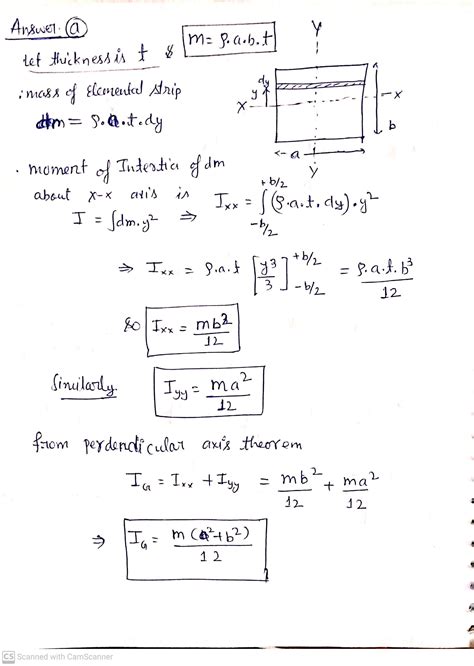 Answer. (a)
let thickness is t & m = ρ.a.b.t
∴ mass of Elemental strip
dm = ρ.a.t.dy
Y
dy
y
X
-X
b
a
Y
• moment of Intertia of dm
about X-X axis is I_xx = ∫_{-b/2}^{+b/2} (ρ.a.t.dy).y²
I = ∫dm.y² ⇒
⇒ I_xx = ρ.a.t [y³/3]_{-b/2}^{+b/2} = ρ.a.t.b³/12
so I_xx = mb²/12
Similarly I_yy = ma²/12
from perdendicular axis theorem
I_G = I_xx + I_yy = mb²/12 + ma²/12
⇒ I_G = m(a²+b²)/12
CS Scanned with CamScanner